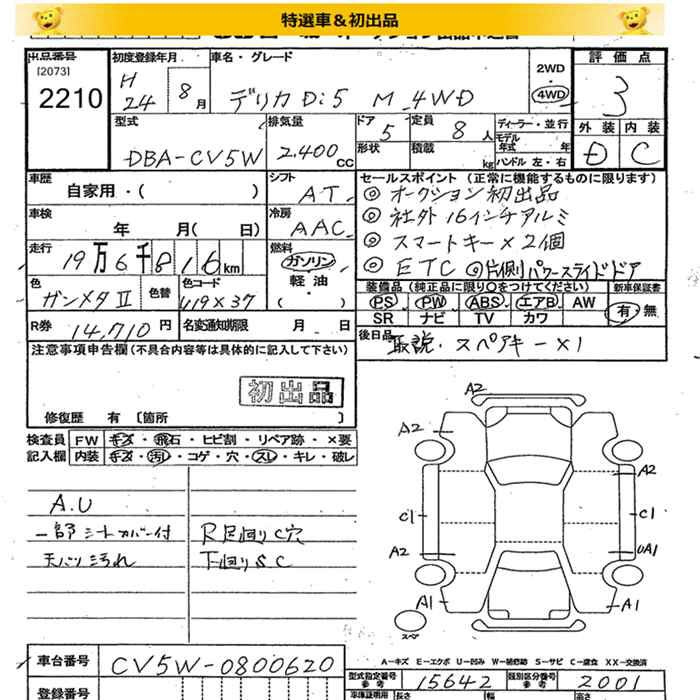 特選車&初出品
出品番号 初度登録年月 車名・グレード 2WD 評価点
[2073]
2210 H24 8月 デリカD:5 M 4WD 4WD 3
型式 排気量 ドア 定員 ディーラー・並行 外装 内装
DBA-CV5W 2.400cc 5 8人 モデル年式 年 D C
形状 積載 kg ハンドル 左・右
車歴 シフト セールスポイント (正常に機能するものに限ります)
自家用・( ) AT ◎オークション初出品
車検 冷房 ◎社外16インチアルミ
年 月( 日) AAC ◎スマートキー×2個
走行 燃料
19万6千816km ガソリン ◎ETC ◎片側パワースライドドア
軽油・
色 色替 色コード 装備品 (純正品に限り○をつけてください) 新車保証書
ガンメタII U19×37 PS PW ABS エアB AW 有・無
SR ナビ TV カワ
R券 14,710円 名変通知期限 月 日 後日品
取説・スペアキー×1
注意事項申告欄(不具合内容等は具体的に記入して下さい)
初出品
修復歴 有 〔箇所 〕
検査員 FW キズ・飛石・ヒビ割・リペア跡・×要
記入欄 内装 キズ・汚れ・コゲ・穴・スレ・キレ・破レ
A.U
一部シートカバー付 R足回りC穴
天バリ汚れ 下回りSC
A2
A2
A2
C1 C1
A2 UA1
A1 A1
スペア
A-キズ E-エクボ U-凹み W-補修跡 S-サビ C-腐食 XX-交換済
車台番号 CV5W-0800620
型式指定番号 参考 15642 類別区分番号 参考 2001
登録番号 車庫証明用 長さ 幅 高さ